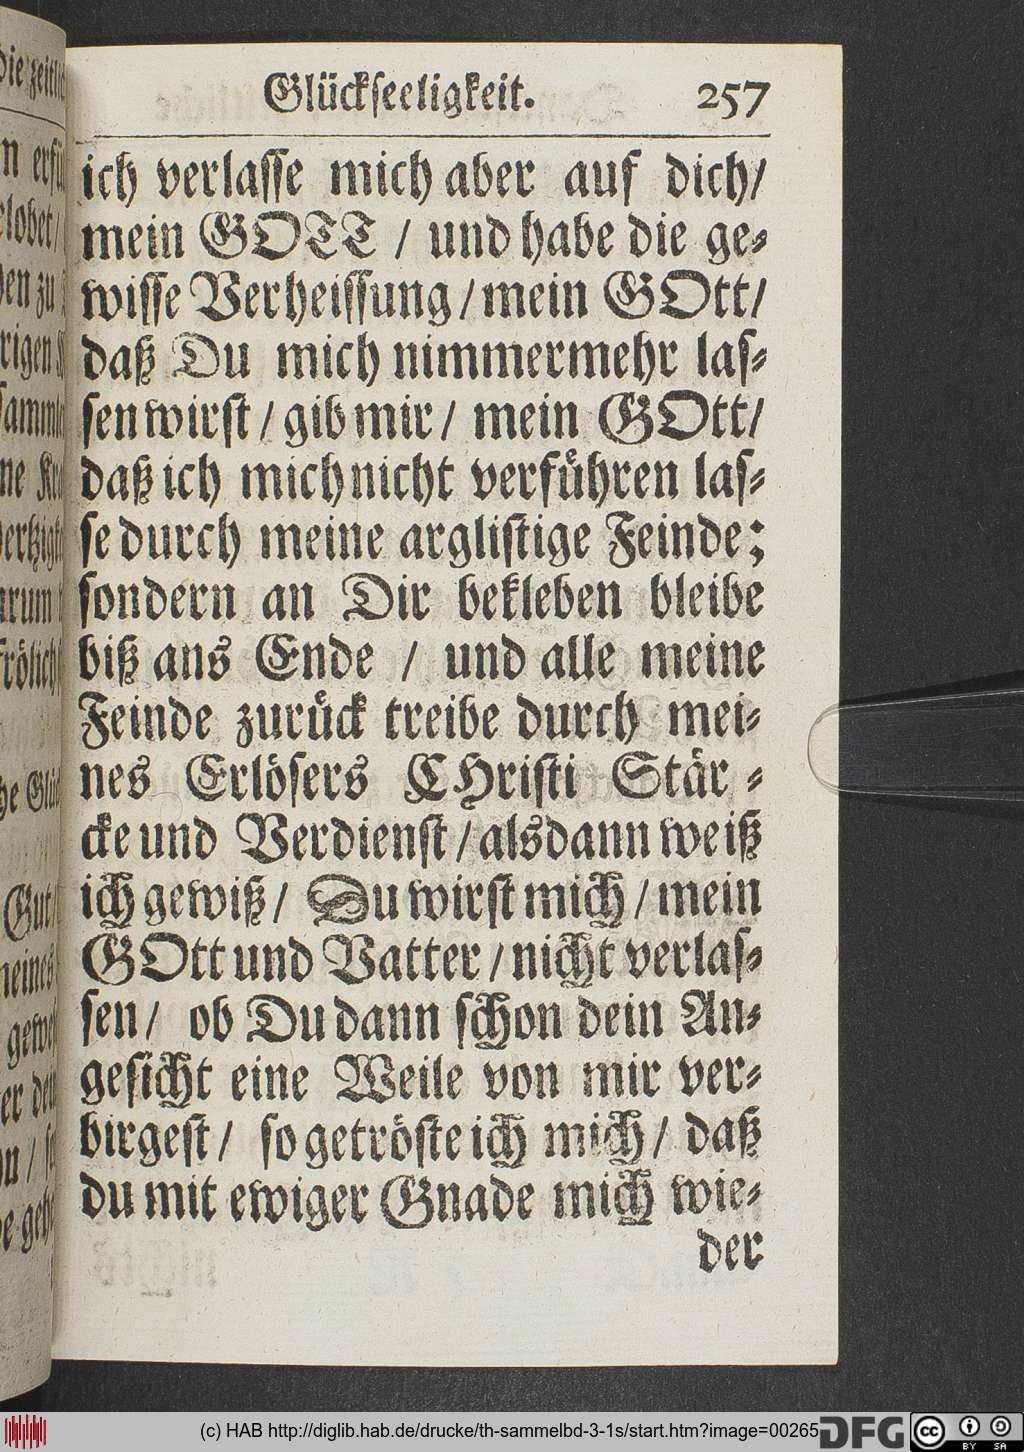 Glückseeligkeit. 257
ich verlasse mich aber auf dich/
mein GOTT / und habe die ge-
wisse Verheissung / mein GOtt/
daß Du mich nimmermehr las-
sen wirst / gib mir / mein GOtt/
daß ich mich nicht verführen las-
se durch meine arglistige Feinde;
sondern an Dir bekleben bleibe
biß ans Ende / und alle meine
Feinde zurück treibe durch mei-
nes Erlösers CHristi Stär-
cke und Verdienst / alsdann weiß
ich gewiß / Du wirst mich / mein
GOtt und Vatter / nicht verlas-
sen / ob Du dann schon dein An-
gesicht eine Weile von mir ver-
birgest / so getröste ich mich / daß
du mit ewiger Gnade mich wie-
der
(c) HAB http://diglib.hab.de/drucke/th-sammelbd-3-1s/start.htm?image=00265
DFG
cc BY SA